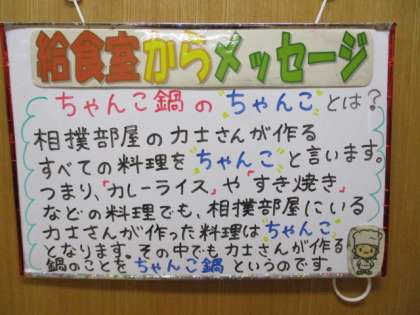 給食室からメッセージ
ちゃんこ鍋の"ちゃんこ"とは?
相撲部屋の力士さんが作る
すべての料理を"ちゃんこ"と言います。
つまり、「カレーライス」や「すき焼き」
などの料理でも、相撲部屋にいる
力士さんが作った料理は"ちゃんこ"
となります。その中でも力士さんが作る
鍋のことをちゃんこ鍋というのです。